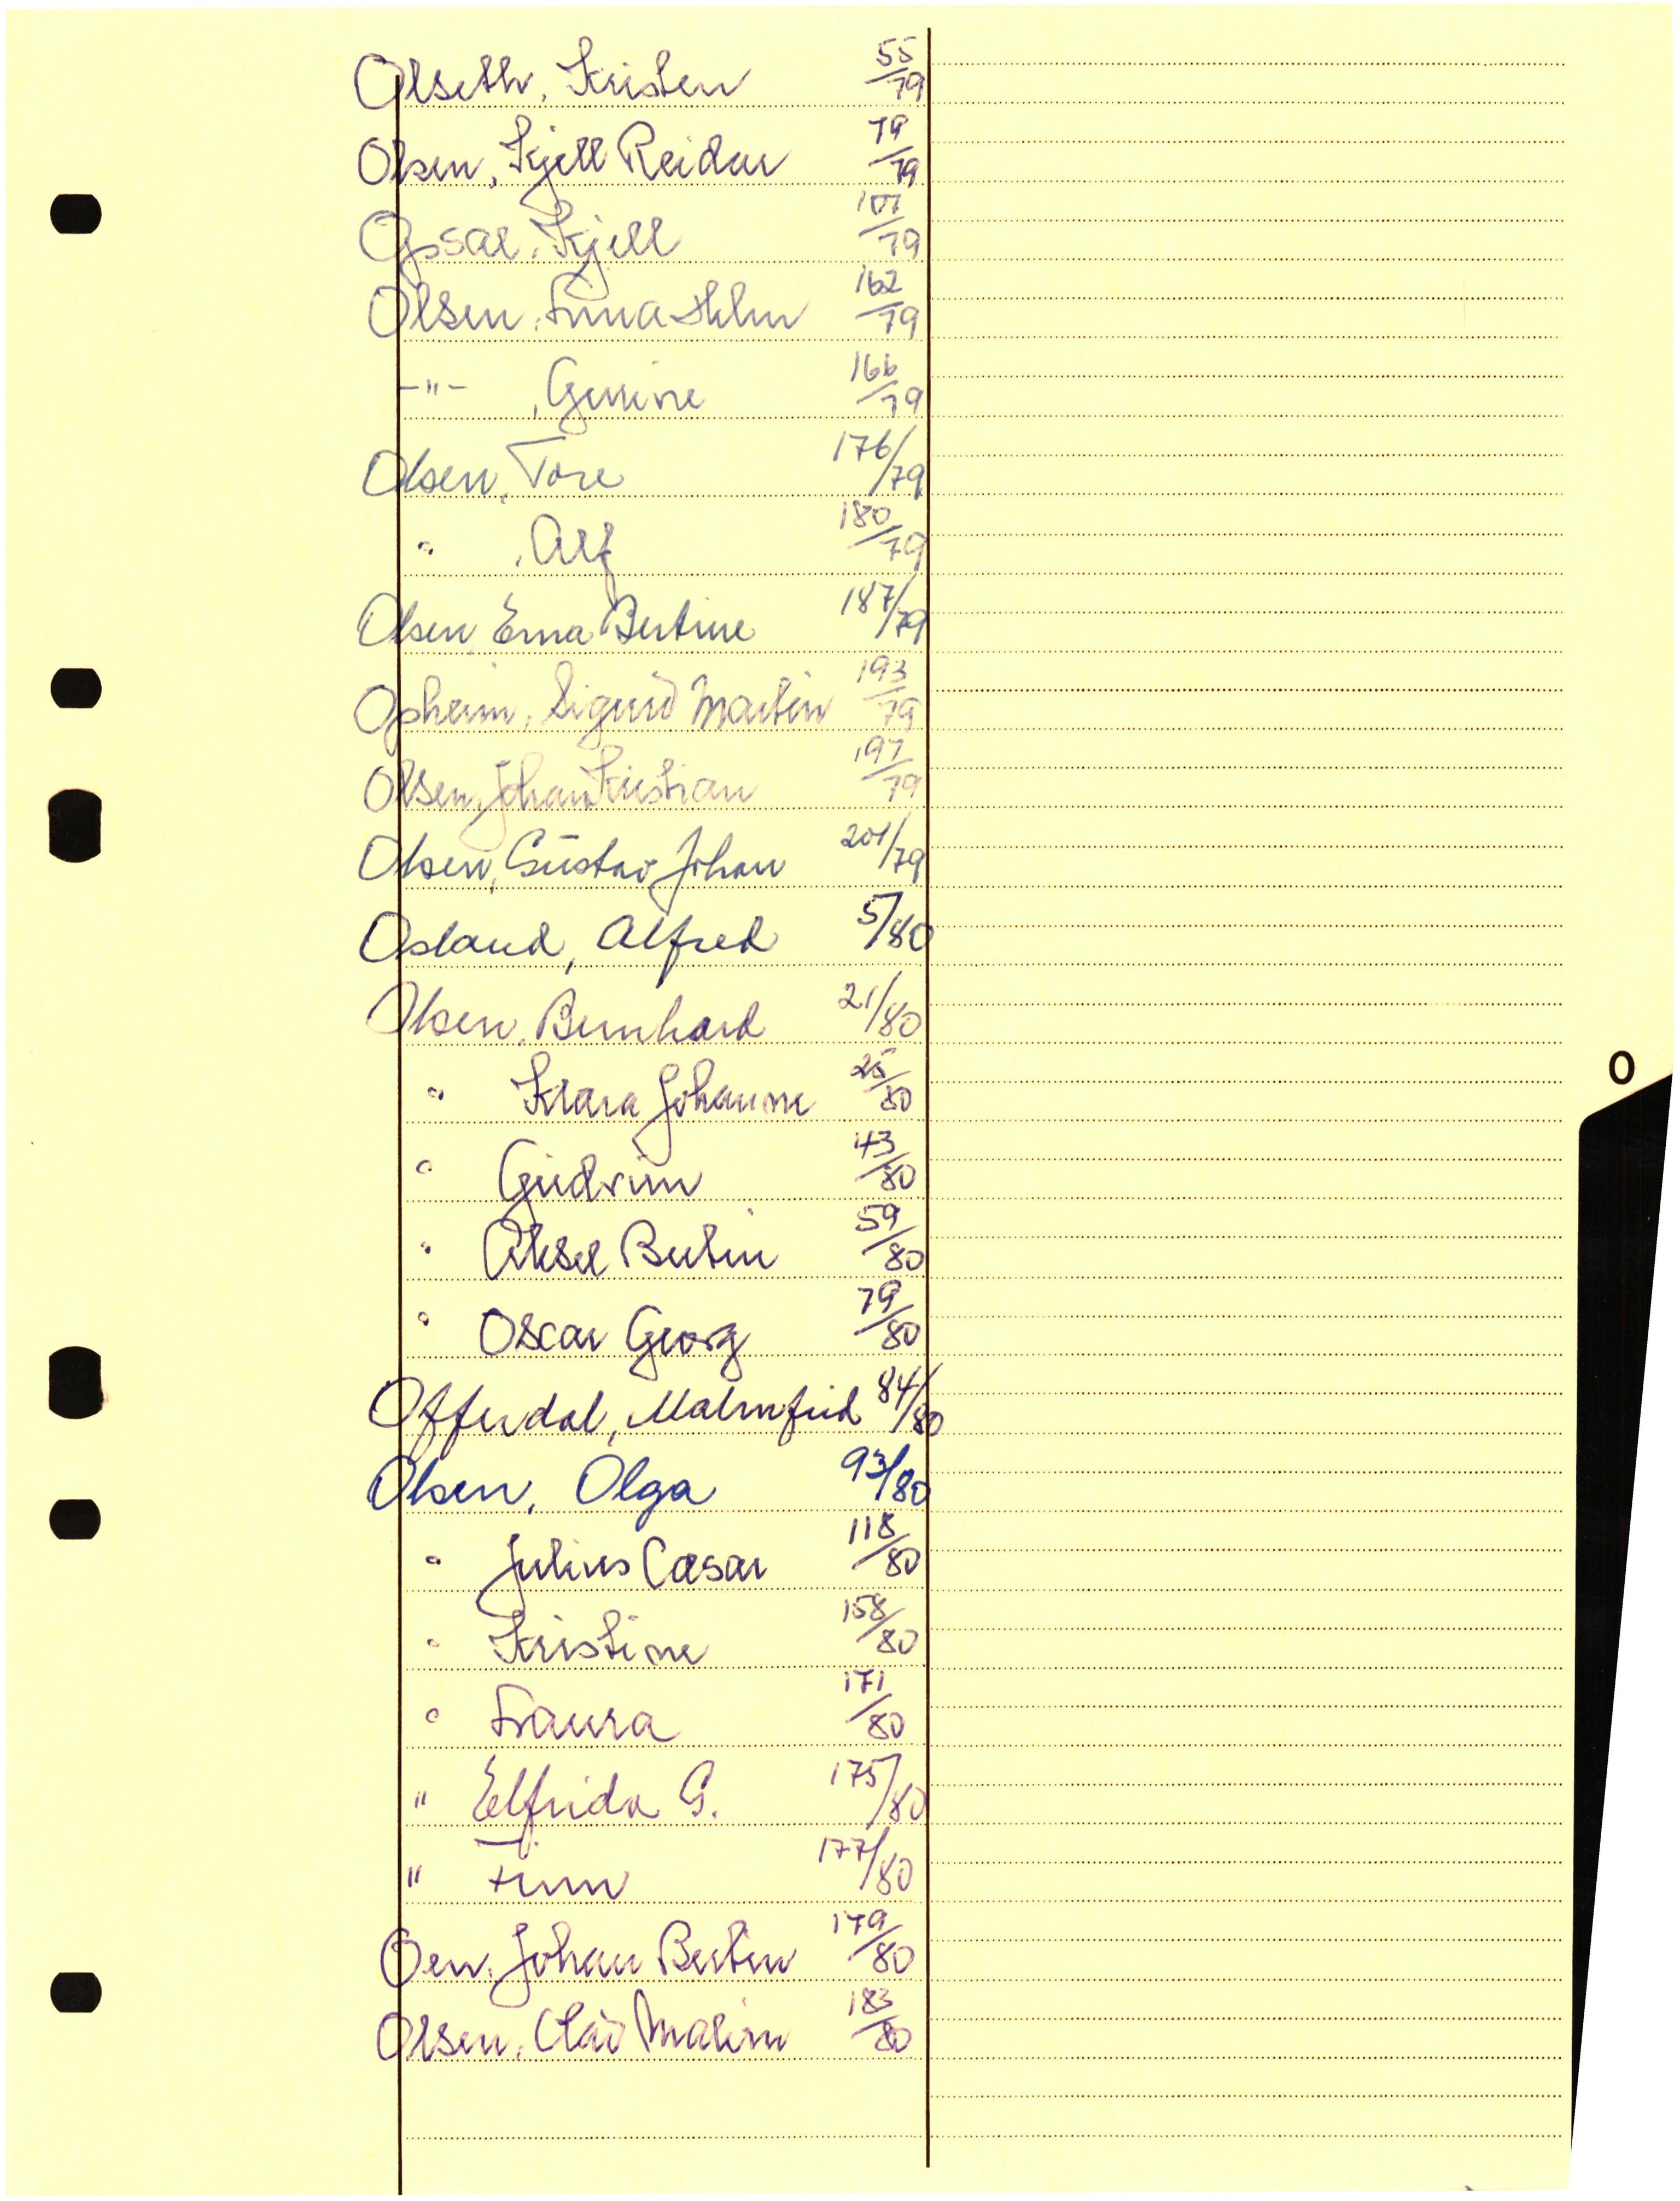 Olseth, Kristen 55/79
Olsen, Kjell Reidar 79/79
Opsal, Kjell 107/79
Olsen, Anna 162/79
-"- , Gurine 166/79
Olsen, Tore 176/79
" , Alf 180/79
Olsen, Erna Bertine 187/79
Opheim, Sigurd Martin 193/79
Olsen, Johan Kristian 197/79
Olsen, Gustav Johan 201/79
Osland, Alfred 5/80
Olsen, Bernhard 21/80
" Klara Johanne 25/80
" Gudrun 43/80
" Aksel Bertin 59/80
" Oscar Georg 79/80
Offerdal, Malmfrid 84/80
Olsen, Olga 93/80
O
" Julius Cæsar 118/80
" Kristine 158/80
" Laura 171/80
" Elfrida G. 175/80
" Finn 177/80
Oen, Johan Bertin 179/80
Olsen, Olav 183/80